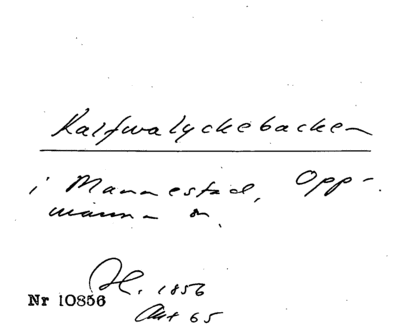 Kalfwalyckebacken
i Mannestad, Opp-
manna sn.
H. 1856
Nr 10856
Akt 65